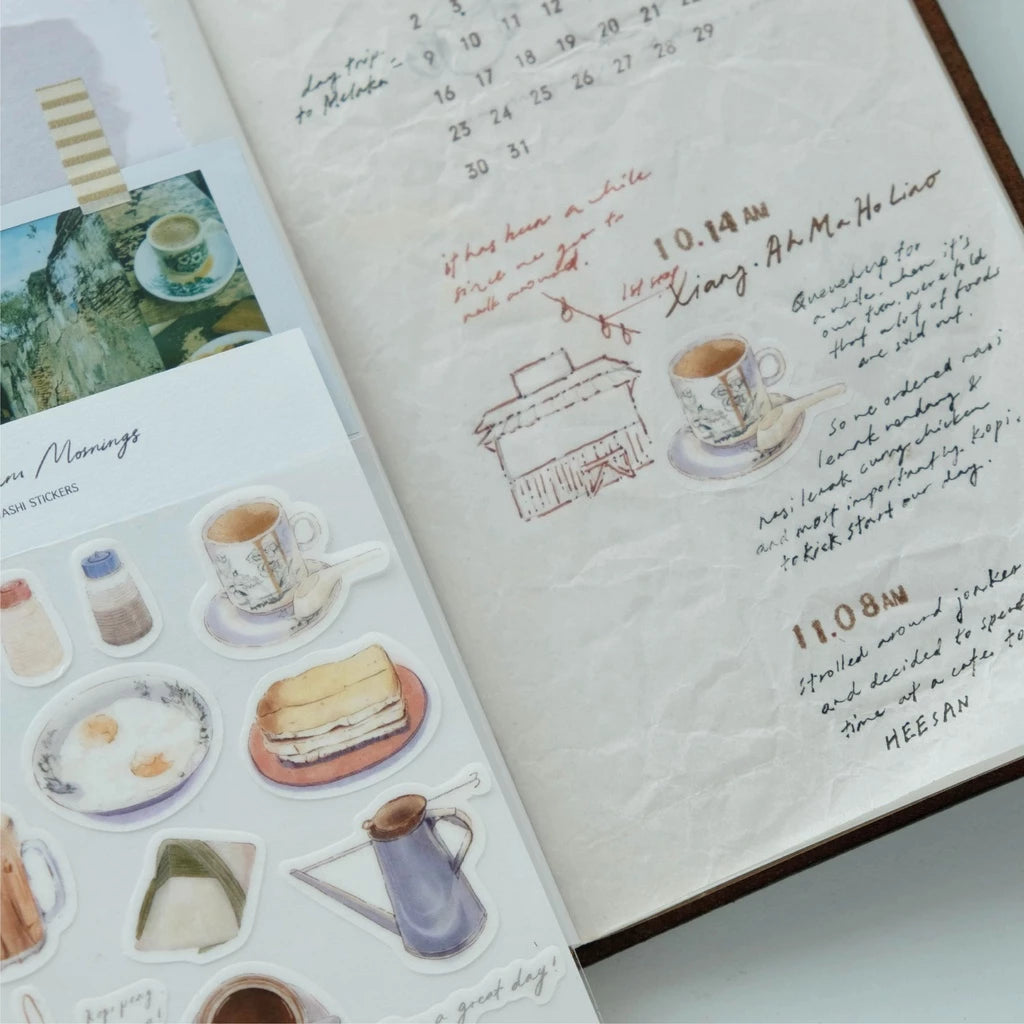 2 3
9 10 11 12
16 17 18 19 20 21
23 24 25 26 27 28 29
30 31
day trip
to Melaka =
it has been a while
since we got to
walk around.
1st stop
10.14 AM
Xiang. Ah Ma Ho Liao
Queued up for
a while. when it's
our turn, we're told
that a lot of foods
are sold out.
So we ordered nasi
lemak rendang &
nasi lemak curry chicken
and most importantly, kopi.
to kick start our day.
11.08 AM
strolled around jonker
and decided to spend
time at a cafe. to
HEESAN
Mornings
ASHI STICKERS
Kopi peng
a great day!